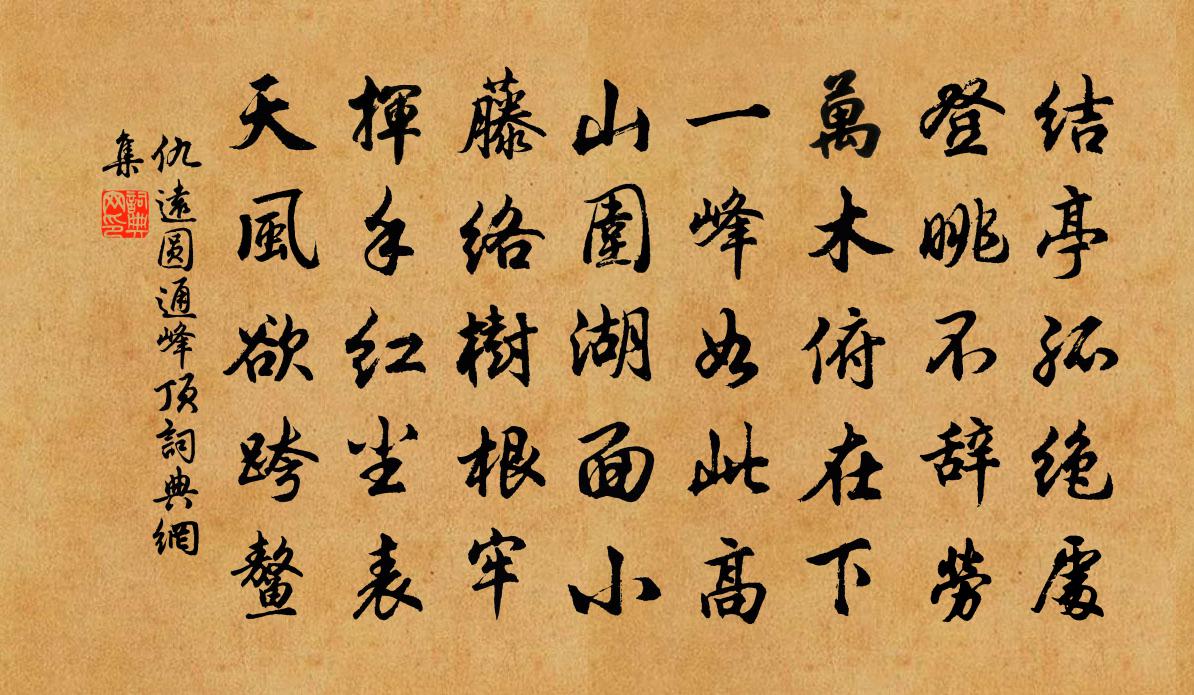 结亭孤绝處
登眺不辞勞
萬木俯在下
一峰如此高
山圍湖面小
藤络樹根牢
揮手红尘表
天風欲跨鳌
仇遠圆通峰顶詞典網
集
詞典
网印